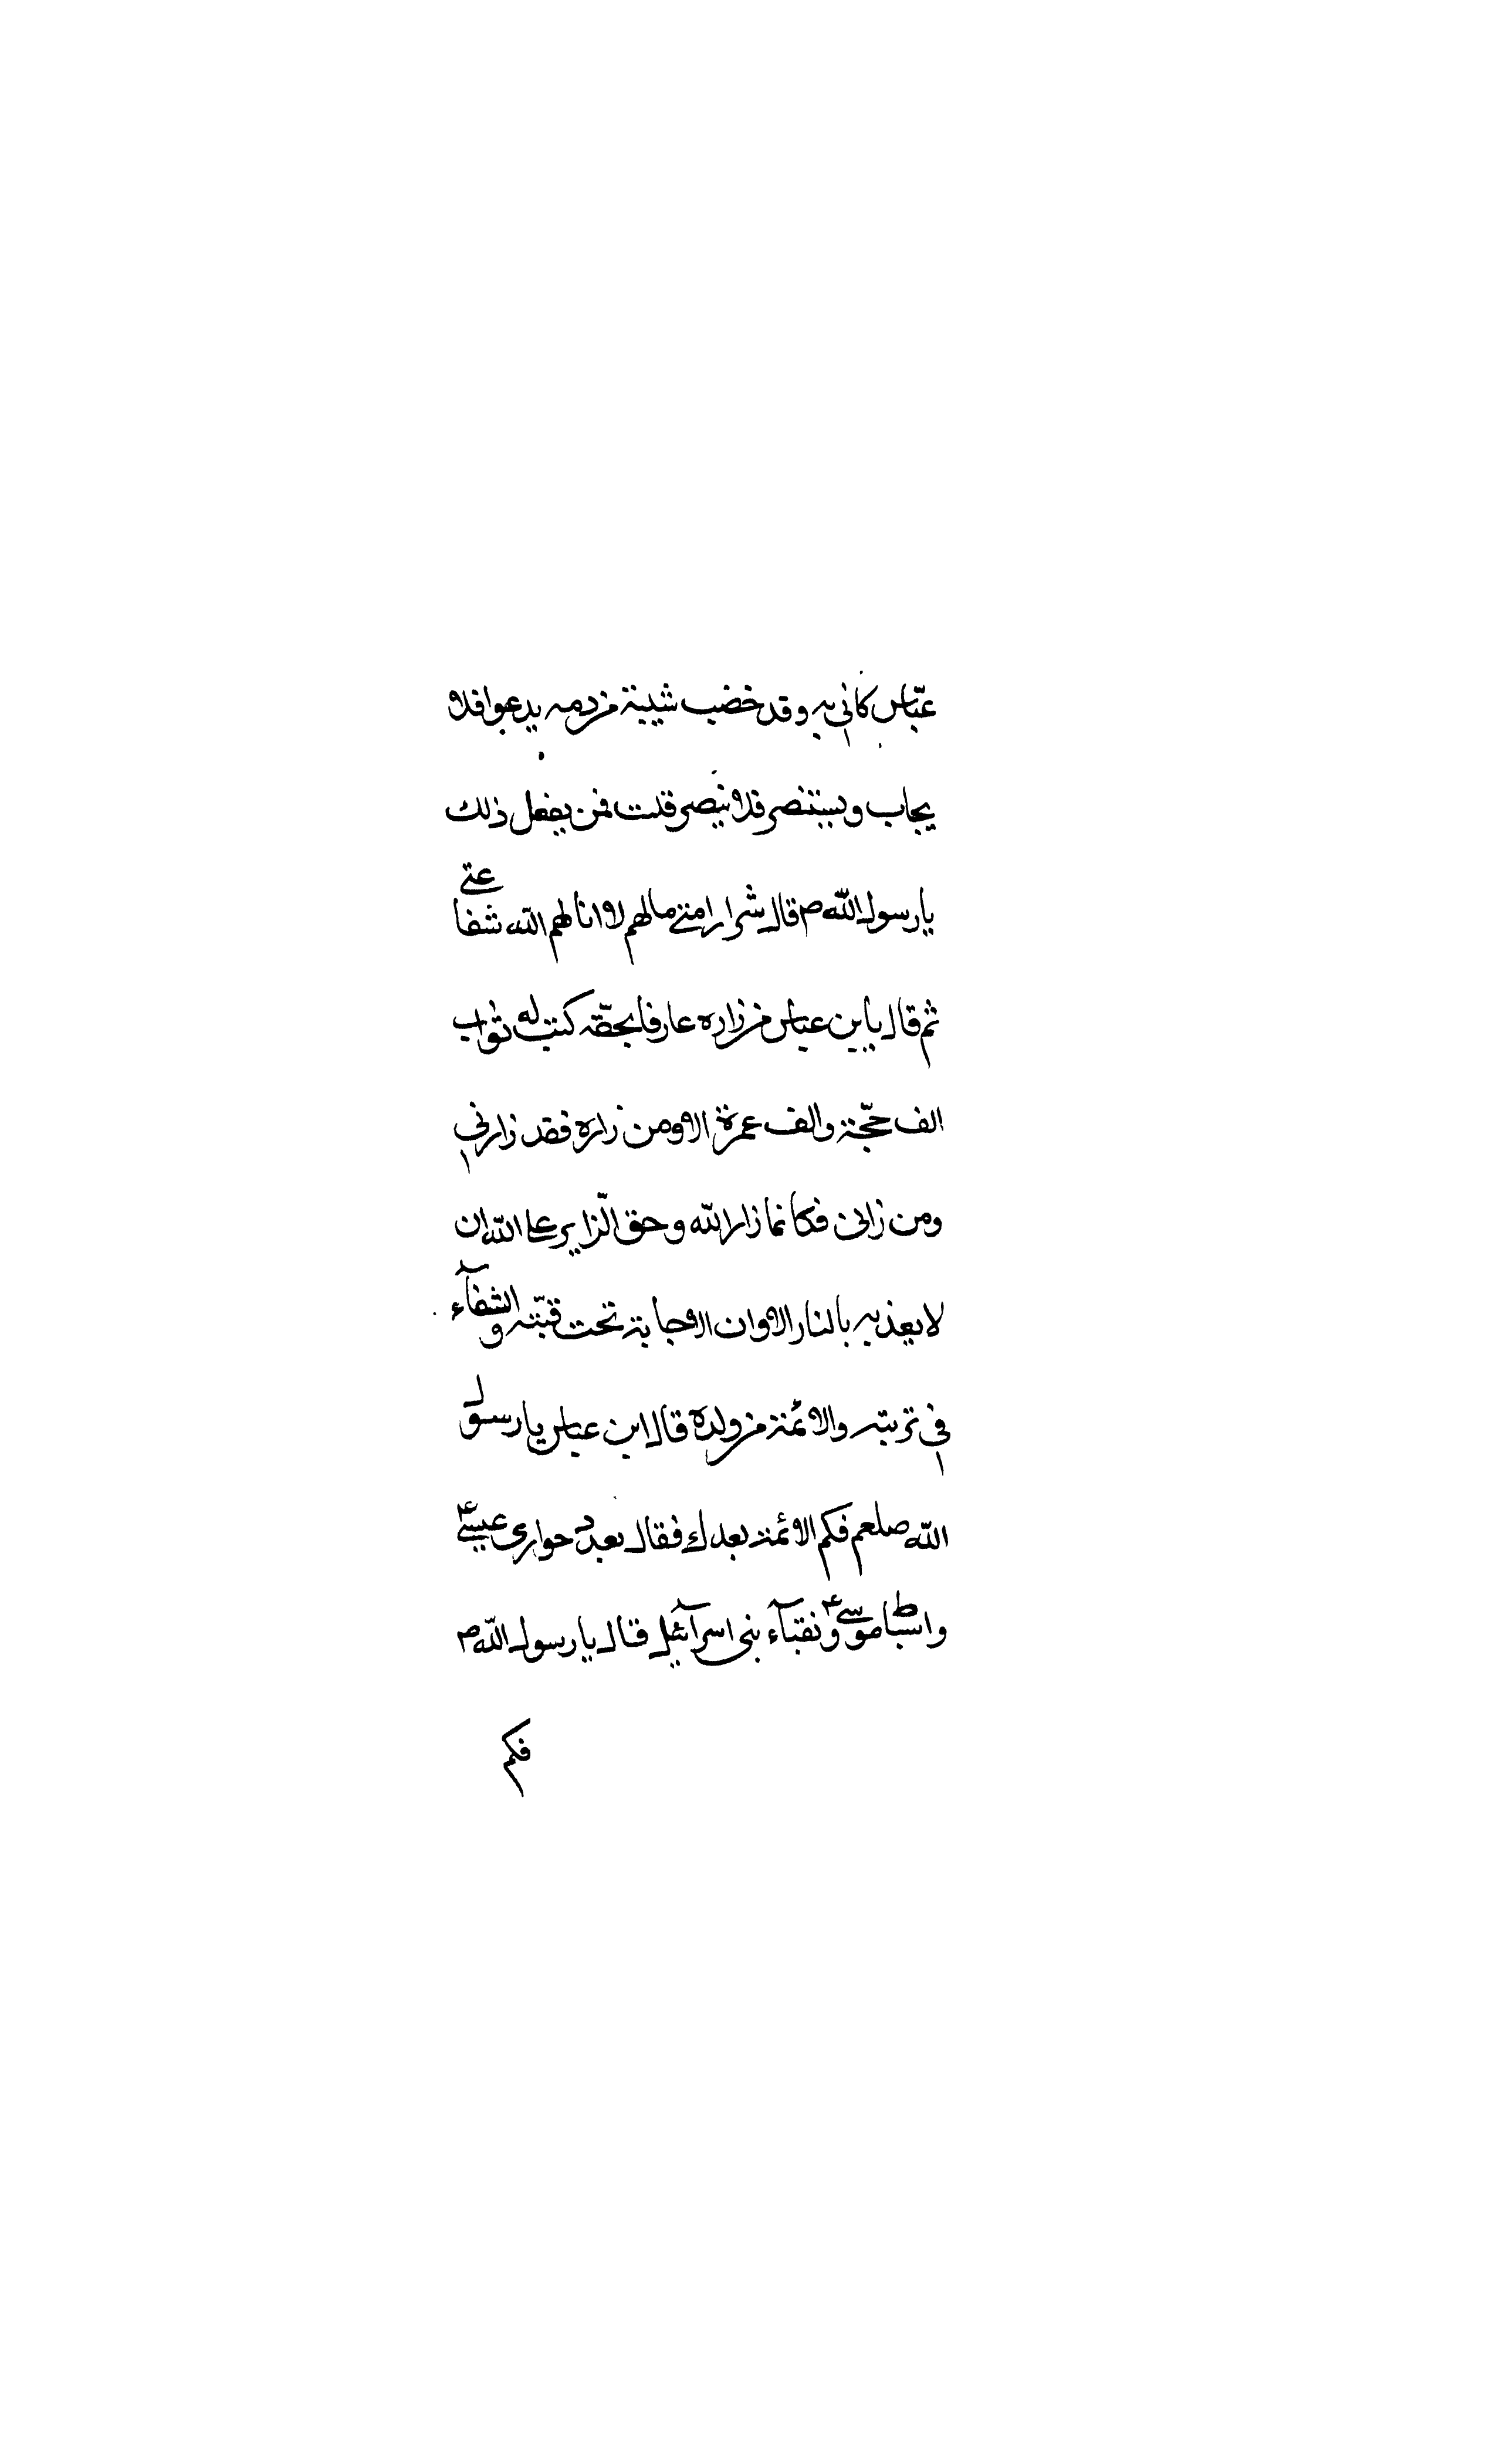 عبّاس كاني به وقد خضب شيبته من دمه يدعوا فلا
يجاب ويستنصر فلا ينصر قلت فمن يفعل ذلك
يا رسول الله ص قال شرار امتي مالهم لا انا لهم الله شفاعتي
ثم قال يا بن عباس من زاره عارفا بحقّه كتب له ثواب
الف حجّة والف عمرة الا ومن زاره فقد زارني
ومن زارني فكانما زار الله وحق الزّاير على الله ان
لا يعذبه بالنار الا وان الاجابة تحت قبّته والشفآء
في تربته والائمة من ولده قال ابن عباس يا رسول
الله صلعم فكم الائمة بعدك فقال بعدد حواري عيسى ع
واسباط موسى ع ونقبآء بني اسرآئيل قال يا رسول الله ص
فكم